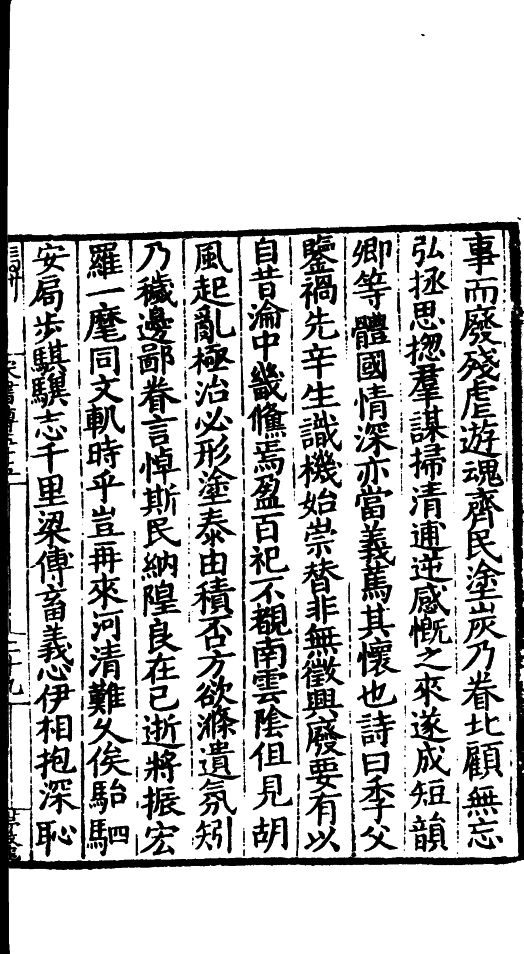 事而廢殘虐遊魂齊民塗炭乃眷北顧無忘
弘拯思揔羣謀掃清逋逆感慨之來遂成短韻
卿等體國情深亦當義篤其懷也詩曰季父
鑒禍先辛生識機始崇替非無徵興廢要有以
自昔淪中畿儵焉盈百祀不覩南雲陰但見胡
風起亂極治必形塗泰由積否方欲滌遺氛矧
乃穢邊鄙眷言悼斯民納隍良在己逝將振宏
羅一麾同文軌時乎豈再來河清難久俟駘駟
安局步騏驥志千里梁傅畜義心伊相抱深恥